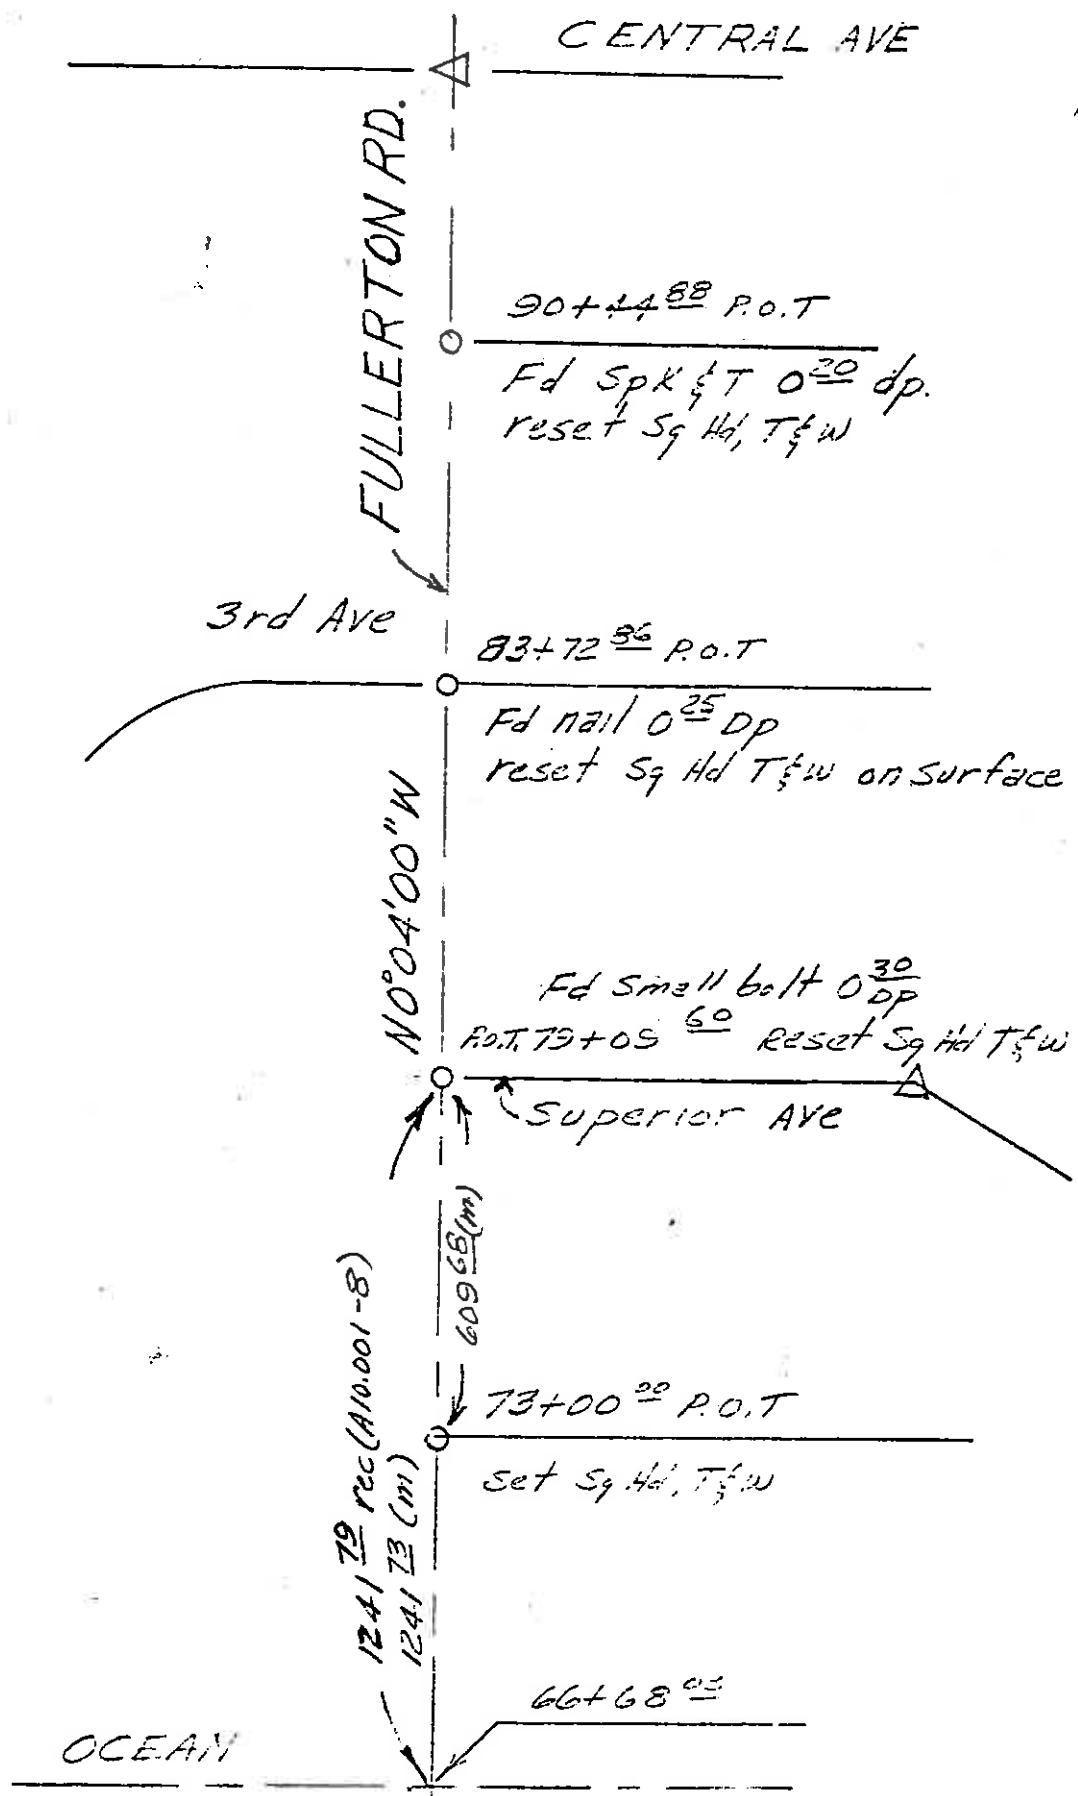 CENTRAL AVE
FULLERTON RD.
90+44 88 P.O.T
Fd Spk & T 0 20 dp.
reset Sq Hd, T & W
3rd Ave
83+72 86 P.O.T
Fd nail 0 25 Dp
reset Sq Hd T & W on surface
N0°04'00"W
Fd small bolt 0 30 DP
P.O.T. 79+09 60 Reset Sq Hd T & W
Superior Ave
609 68 (m)
1241 79 rec (A10.001-8)
1241 73 (m)
73+00 00 P.O.T
set Sq Hd, T & W
66+68
OCEAN